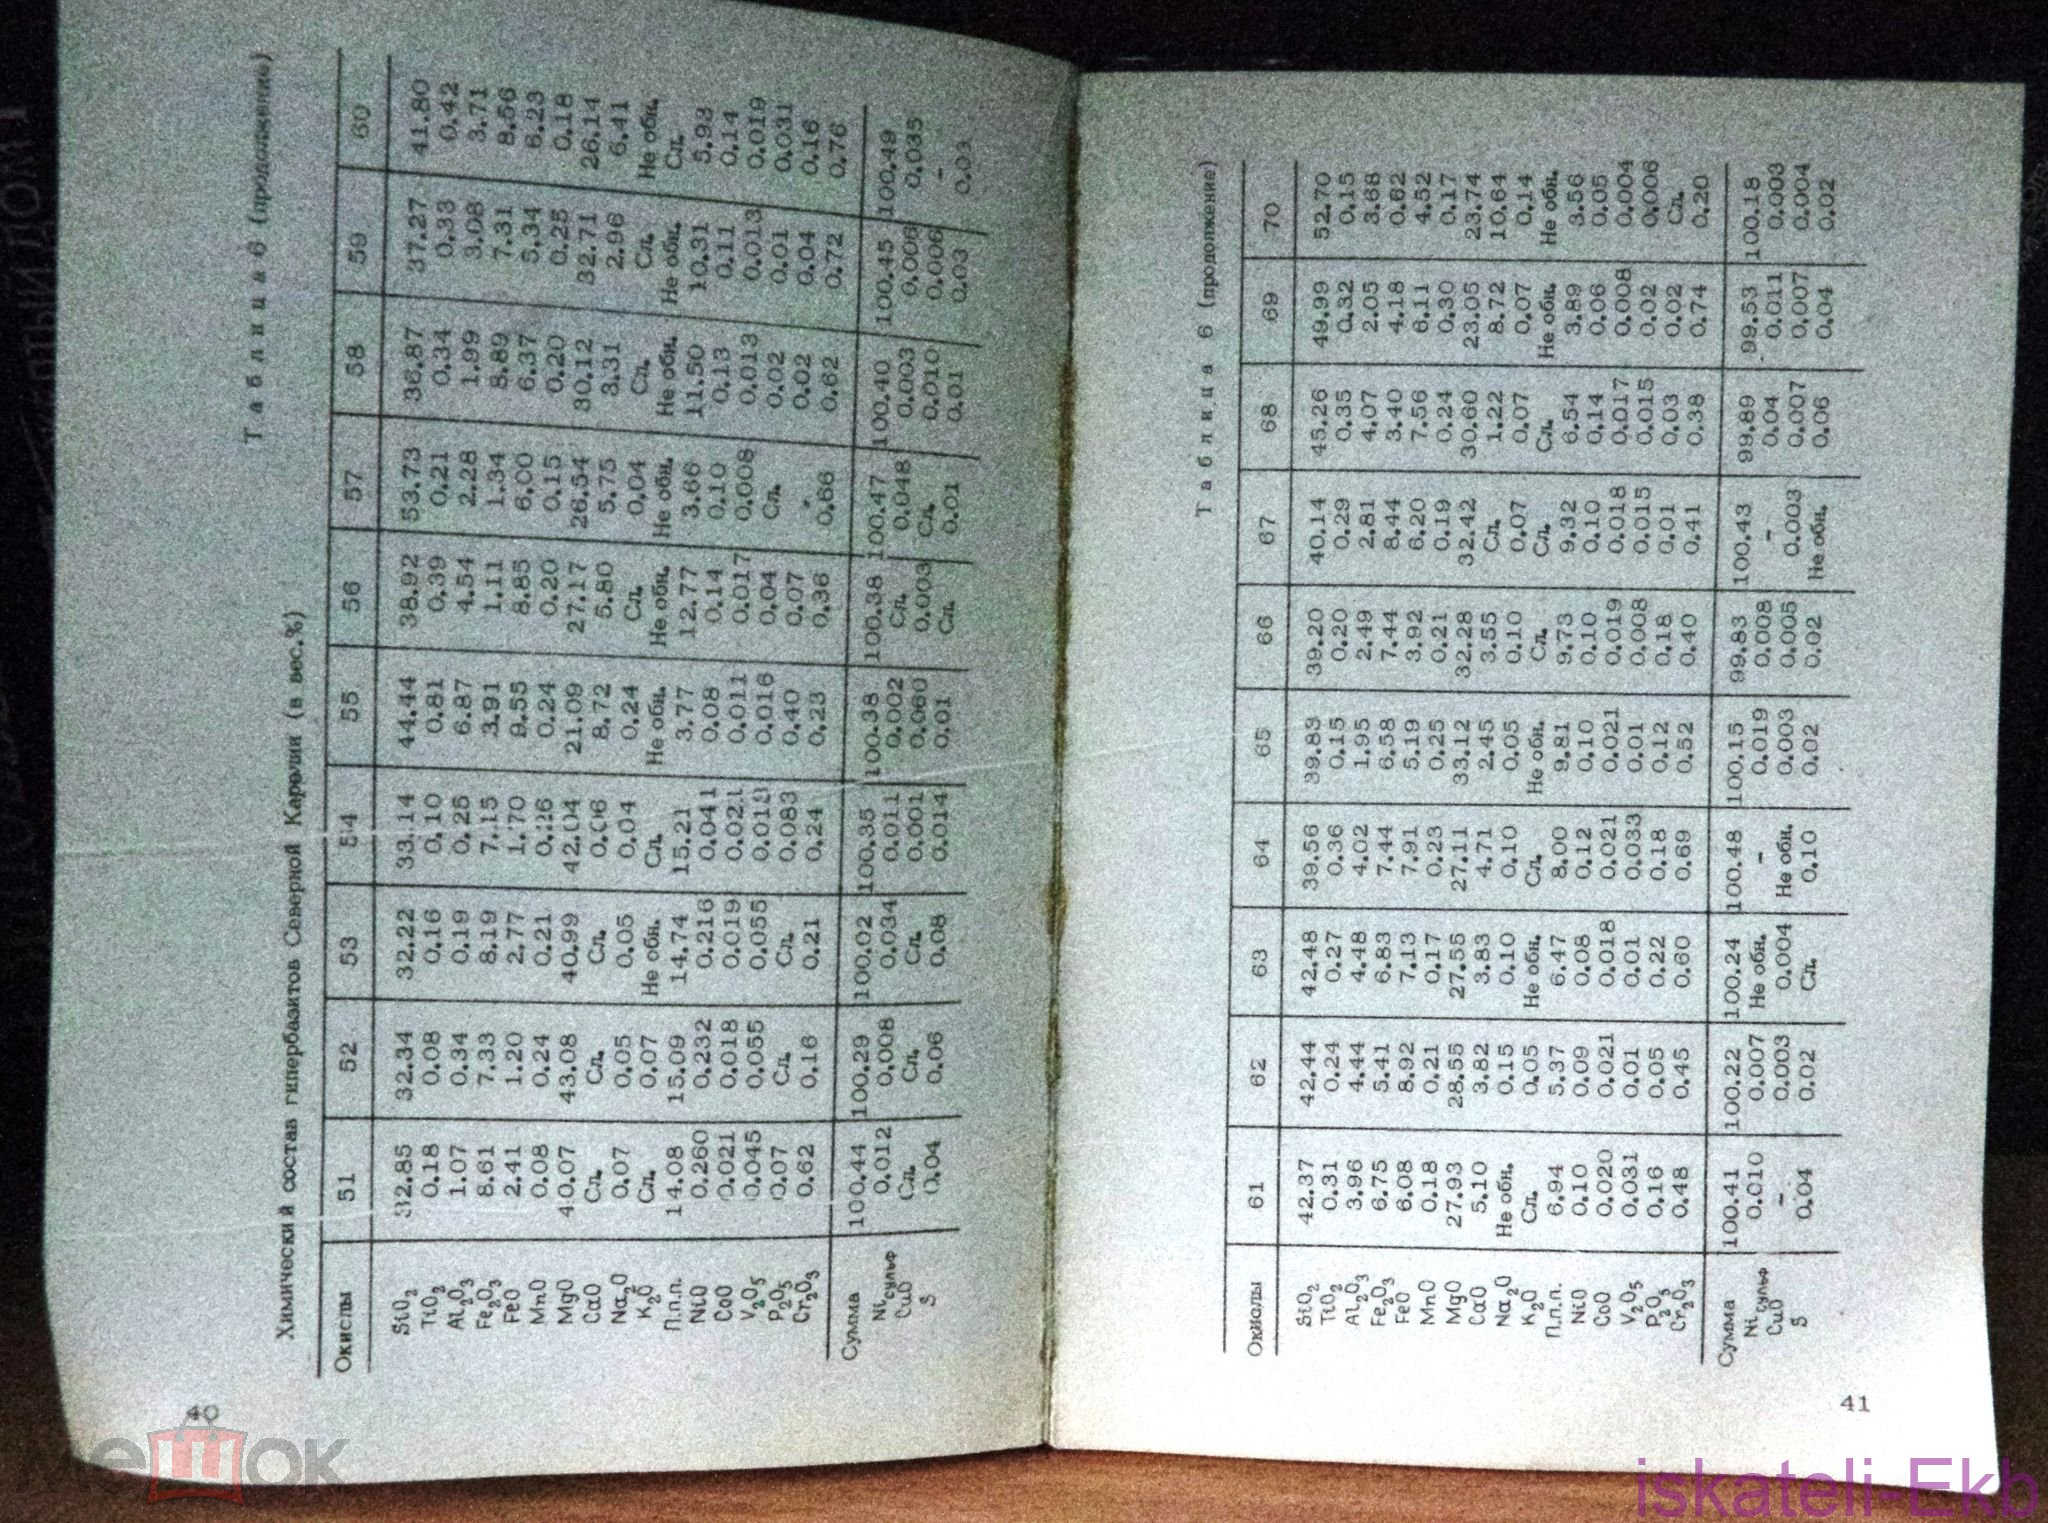 Таблица 6 (продолжение)
Химический состав гипербазитов Северной Карелии (в вес.%)
Окислы 51 52 53 54 55 56 57 58 59 60
SiO₂ 32.85 32.34 32.22 33.14 44.44 38.92 53.73 36.87 37.27 41.80
TiO₂ 0.18 0.08 0.16 0.10 0.81 0.39 0.21 0.34 0.33 0.42
Al₂O₃ 1.07 0.34 0.19 0.25 6.87 4.54 2.28 1.99 3.08 3.71
Fe₂O₃ 8.61 7.33 8.19 7.15 3.91 1.11 1.34 8.89 7.31 8.56
FeO 2.41 1.20 2.77 1.70 9.55 8.85 6.00 6.37 5.34 6.23
MnO 0.08 0.24 0.21 0.26 0.24 0.20 0.15 0.20 0.25 0.18
MgO 40.07 43.08 40.99 42.04 21.09 27.17 26.54 30.12 32.71 26.14
CaO Сл. Сл. Сл. 0.06 8.72 5.80 5.75 3.31 2.96 6.41
Na₂O 0.07 0.05 0.05 0.04 0.24 Сл. 0.04 Сл. Сл. Не обн.
K₂O Сл. 0.07 Не обн. Сл. Не обн. Не обн. Не обн. Не обн. Не обн. Сл.
П.п.п. 14.08 15.09 14.74 15.21 3.77 12.77 3.66 11.50 10.31 5.93
NiO 0.260 0.232 0.216 0.041 0.08 0.14 0.10 0.13 0.11 0.14
CoO 0.021 0.018 0.019 0.021 0.011 0.017 0.008 0.013 0.013 0.019
V₂O₅ 0.045 0.055 0.055 0.013 0.016 0.04 Сл. 0.02 0.01 0.031
P₂O₅ 0.07 Сл. Сл. 0.083 0.40 0.07 0.02 0.04 0.16
Cr₂O₃ 0.62 0.16 0.21 0.24 0.23 0.36 0.66 0.62 0.72 0.76
Сумма 100.44 100.29 100.02 100.35 100.38 100.38 100.47 100.40 100.45 100.49
Ni сульф 0.012 0.008 0.034 0.011 0.002 Сл. 0.048 0.003 0.006 0.035
CuO Сл. Сл. Сл. 0.001 0.060 0.003 Сл. 0.010 0.006 -
S 0.04 0.06 0.08 0.014 0.01 Сл. 0.01 0.01 0.03 0.03
40
Таблица 6 (продолжение)
Окислы 61 62 63 64 65 66 67 68 69 70
SiO₂ 42.37 42.44 42.48 39.56 39.83 39.20 40.14 45.26 49.99 52.70
TiO₂ 0.31 0.24 0.27 0.36 0.15 0.20 0.29 0.35 0.32 0.15
Al₂O₃ 3.96 4.44 4.48 4.02 1.95 2.49 2.81 4.07 2.05 3.68
Fe₂O₃ 6.75 5.41 6.83 7.44 6.58 7.44 8.44 3.40 4.18 0.62
FeO 6.08 8.92 7.13 7.91 5.19 3.92 6.20 7.56 6.11 4.52
MnO 0.18 0.21 0.17 0.23 0.25 0.21 0.19 0.24 0.30 0.17
MgO 27.93 28.55 27.55 27.11 33.12 32.28 32.42 30.60 23.05 23.74
CaO 5.10 3.82 3.83 4.71 2.45 3.55 Сл. 1.22 8.72 10.64
Na₂O Не обн. 0.15 0.10 0.10 0.05 0.10 0.07 0.07 0.07 0.14
K₂O Сл. 0.05 Не обн. Сл. Не обн. Сл. Сл. Сл. Не обн. Не обн.
П.п.п. 6.94 5.37 6.47 8.00 9.81 9.73 9.32 6.54 3.89 3.56
NiO 0.10 0.09 0.08 0.12 0.10 0.10 0.10 0.14 0.06 0.05
CoO 0.020 0.021 0.018 0.021 0.021 0.019 0.018 0.017 0.008 0.004
V₂O₅ 0.031 0.01 0.01 0.033 0.01 0.008 0.015 0.015 0.02 0.006
P₂O₅ 0.16 0.05 0.22 0.18 0.12 0.18 0.01 0.03 0.02 Сл.
Cr₂O₃ 0.48 0.45 0.60 0.69 0.52 0.40 0.41 0.38 0.74 0.20
Сумма 100.41 100.22 100.24 100.48 100.15 99.83 100.43 99.89 99.53 100.18
Ni сульф 0.010 0.007 Не обн. - 0.019 0.008 - 0.04 0.011 0.003
CuO - 0.003 0.004 Не обн. 0.003 0.005 0.003 0.007 0.007 0.004
S 0.04 0.02 Сл. 0.10 0.02 0.02 Не обн. 0.06 0.04 0.02
41
мешок
iskateli-Ekb